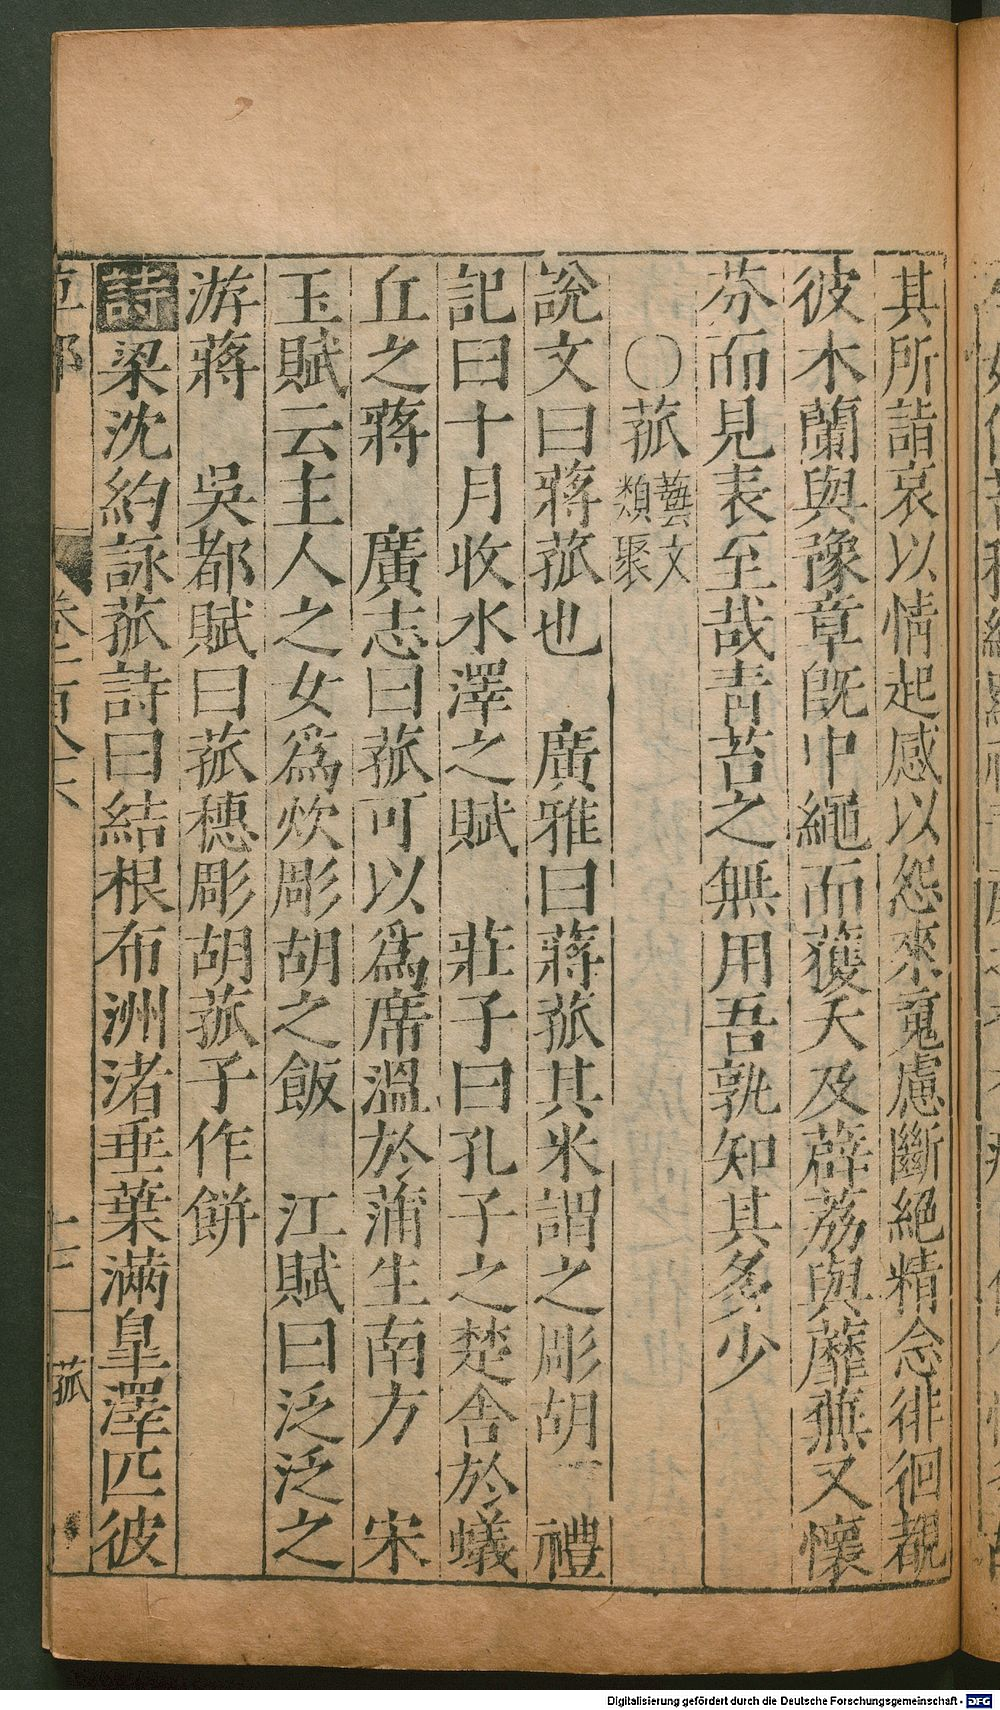 其所詣哀以情起感以怨來䰟慮斷絕精念徘徊覩
彼木蘭與豫章旣中繩而獲夭及薜荔與蘼蕪又懷
芬而見表至哉青苔之無用吾孰知其多少
〇菰藝文類聚
說文曰蔣菰也　廣雅曰蔣菰其米謂之彫胡　禮
記曰十月收水澤之賦　莊子曰孔子之楚舍於蟻
丘之蔣　廣志曰菰可以爲席溫於蒲生南方　宋
玉賦云主人之女爲炊彫胡之飯　江賦曰泛泛之
游蔣　吳都賦曰菰穗彫胡菰子作餅
詩梁沈約詠菰詩曰結根布洲渚垂葉滿皇澤匹彼
菰
Digitalisierung gefördert durch die Deutsche Forschungsgemeinschaft - DFG